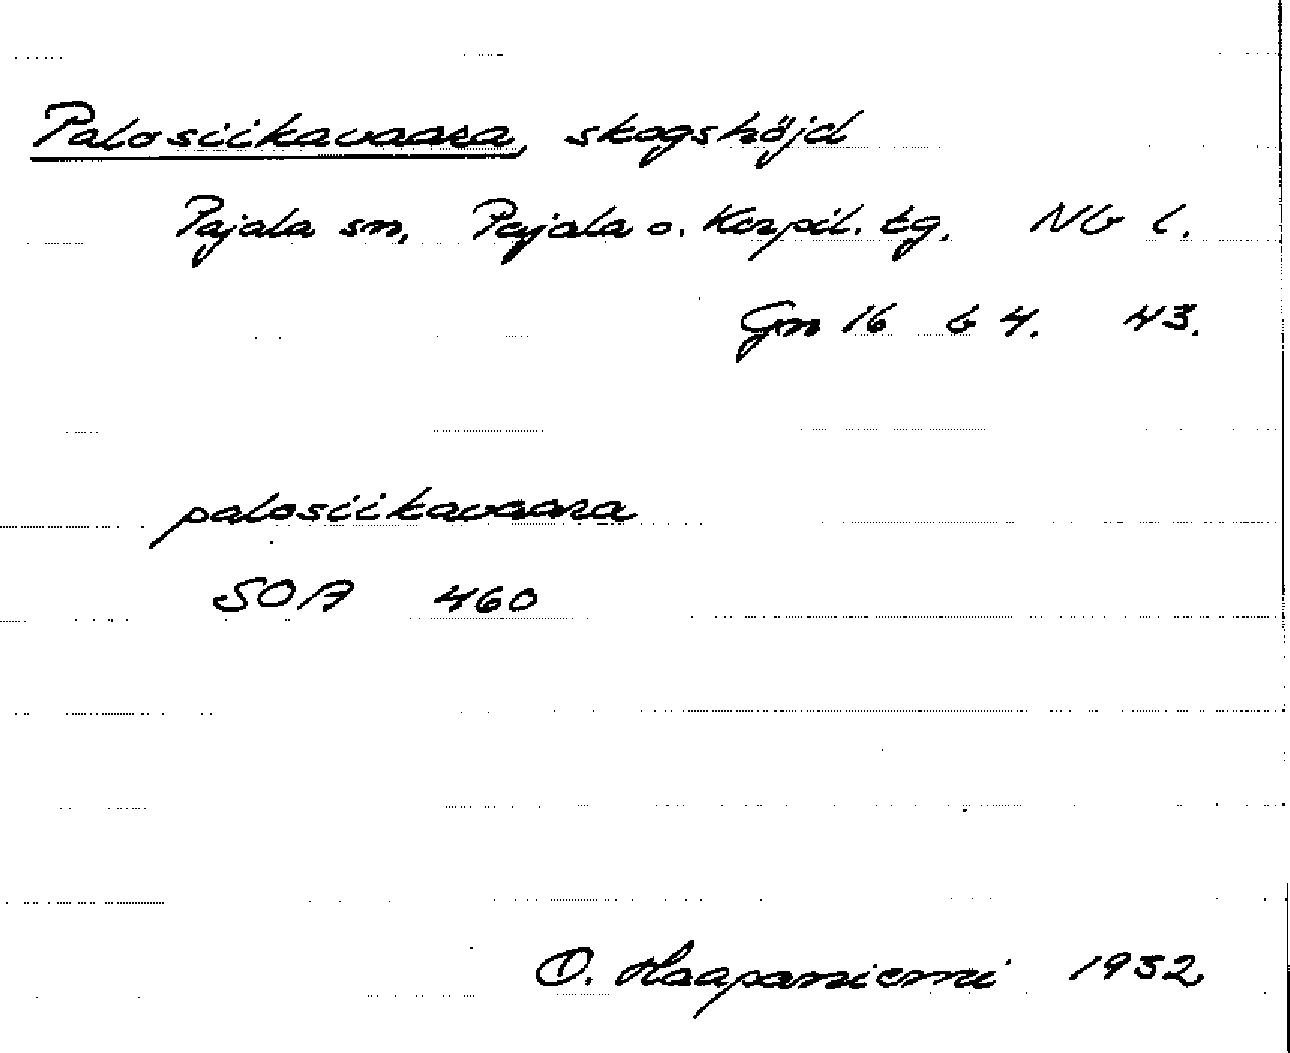 Palosiikavaara, skogshöjd
Pajala sn, Pajala o. Korpil. tg. Nb l.
Gn 16 b 4. 43.
palosiikavaara
SOA 460
O. Haapaniemi 1932